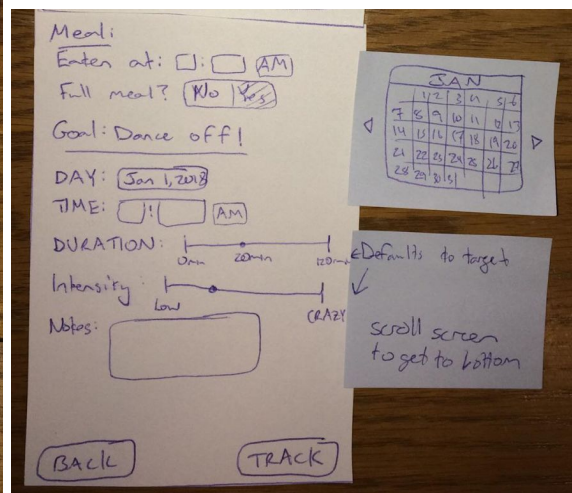 Meal:
Eaten at: : AM
Full meal? No Yes
Goal: Dance off!
DAY: Jan 1, 2018
TIME: : AM
DURATION: 0min 20min 120min
Intensity: Low CRAZY
Notes:
BACK TRACK
JAN
1 2 3 4 5 6
7 8 9 10 11 12 13
14 15 16 17 18 19 20
21 22 23 24 25 26 27
28 29 30 31
Defaults to target
scroll screen
to get to bottom